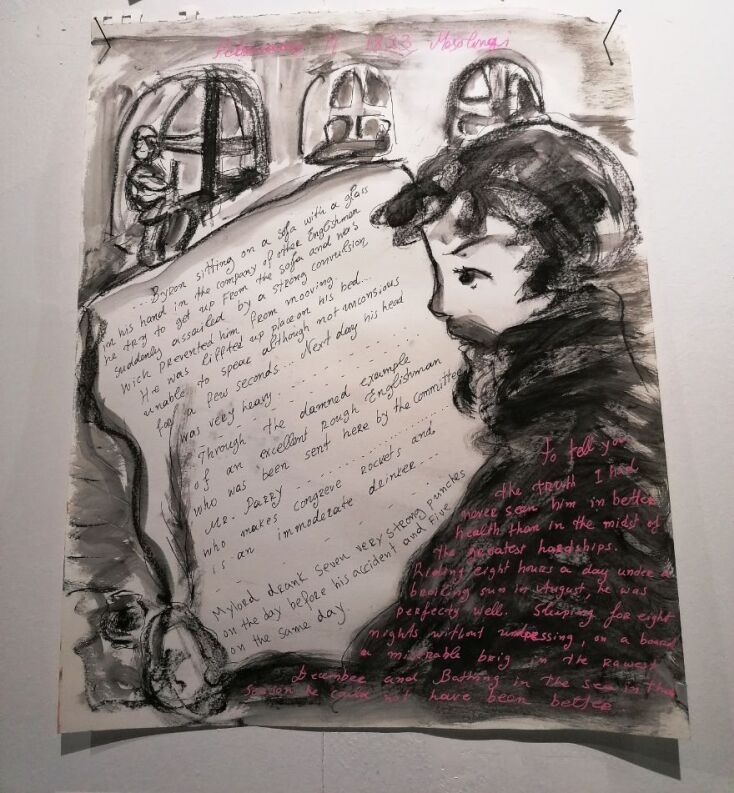 4 1823 Mesolongi
...Byron sitting on a sofa with a glass
in his hand in the company of other Englishman
he try to get up from the sofa and was
suddenly assailed by a strong convulsion
wick prevented him from mooving.
He was liffted up place on his bed...
unable to speak although not unconsious
for a few seconds... Next day his head
was very heavy
Through the damned example
of an excellent rough Englishman
who was been sent here by the Committee
Mr. Parry
who makes congreve rockets and
is an immoderate drinker...
Mylord drank seven very strong punches
on the day before his accident and five
on the same day
To tell you
the truth I had
never seen him in better
health than in the midst of
the greatest hardships.
Riding eight hours a day under a
broiling sun in August, he was
perfectly well. Sleeping for eight
nights without undressing, on a board
a miserable brig in the rawest
December and Bathing in the sea in that
season he could not have been better